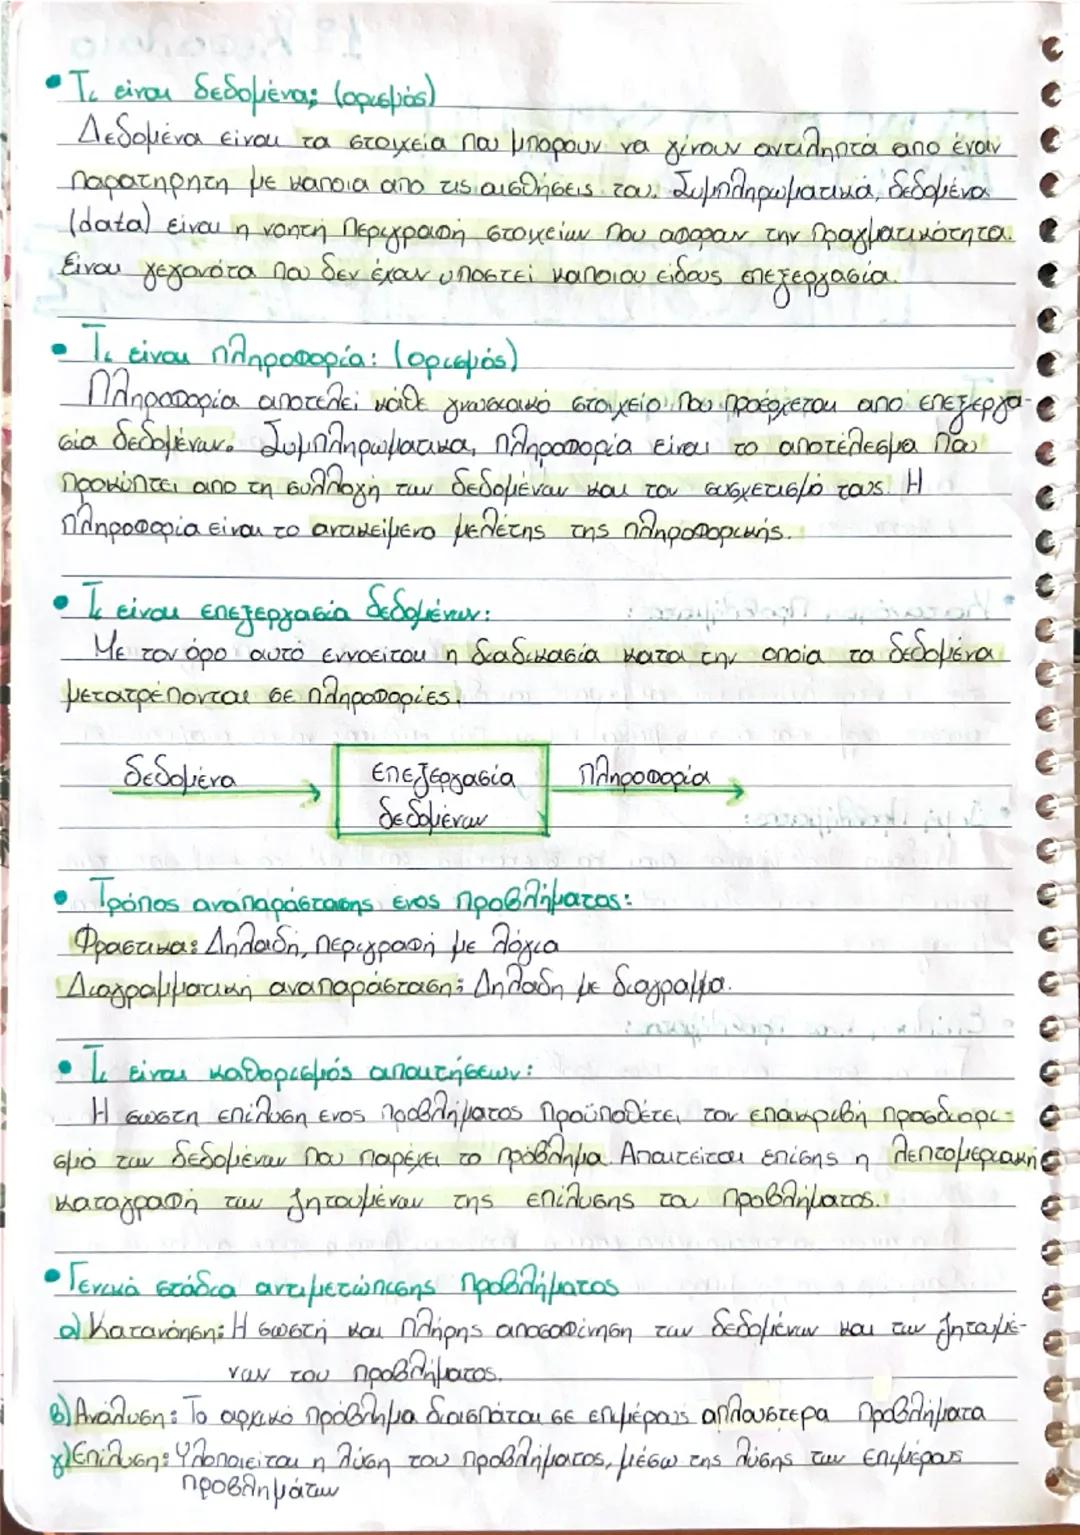 • Τι είναι δεδομένα; (ορισμός)
Δεδομένα είναι τα στοιχεία που μπορουν να γίνουν αντιληπτά απο έναν
παρατηρητη με καποια απο τις αισθήσεις του. Συμπληρωματικά, δεδομένα
(data) είναι η νοητή περιγραφή στοιχείων που αφοραν την πραγματικότητα.
Είναι γεγονότα που δεν έχουν υποστεί καποιου είδους επεξεργασία.
• Τι είναι πληροφορία: (ορισμός)
Πληροφορία αποτελεί κάθε γνωσιακό στοιχείο που προέρχεται απο επεξεργα-
σία δεδομένων. Συμπληρωματικα, πληροφορία είναι το αποτέλεσμα που
προκύπτει απο τη συλλογή των δεδομένων και τον συσχετισμό τους. Η
πληροφορία είναι το αντικείμενο μελέτης της πληροφορικής.
• Τι είναι επεξεργασία δεδομένων:
Με τον όρο αυτό εννοείται η διαδικασία κατα την οποία τα δεδομένα
μετατρέπονται σε πληροφορίες.
δεδομένα επεξεργασία πληροφορία
δεδομένων
• Τρόπος αναπαράστασης ενος προβλήματος:
Φραστικα: Δηλαδή, περιγραφή με λόγια
Διαγραμματική αναπαράσταση: Δηλαδη με διαγραμμα.
• Τι είναι καθορισμός απαιτήσεων:
Η σωστη επίλυση ενος προβλήματος προϋποθέτει τον επακριβή προσδιορι-
σμό των δεδομένων που παρέχει το πρόβλημα. Απαιτείται επίσης η λεπτομεριακή
καταγραφή των ζητουμένων της επίλυσης του προβλήματος.
• Γενικά στάδια αντιμετώπισης προβλήματος
α) Κατανόηση: Η σωστή και πλήρης αποσαφίνηση των δεδομένων και των ζητουμέ-
νων του προβλήματος.
β) Ανάλυση: Το αρχικό πρόβλημα διασπάται σε επιμέρους απλουστερα προβλήματα
γ) Επίλυση: Υλοποιείται η λύση του προβλήματος, μέσω της λύσης των επιμέρους
προβλημάτων